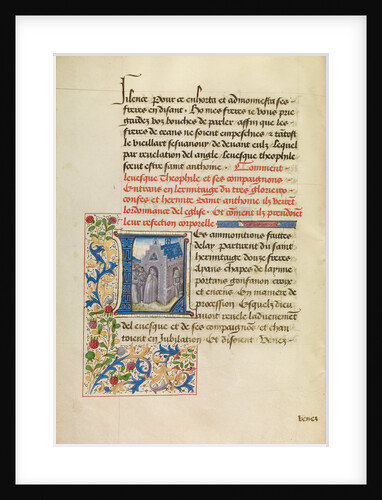 Silence Pour ce enhorta et admonnesta ses
freres en disant O mes freres ie vous prie
gardez voz bouches de parler affin que les
freres de ceans ne soient empeschies Et tatost
le vieillart sesuanouy de deuant eulx Lequel
par reuelation del angle leuesque theophile
sceut estre saint anthoine Comment
leuesque Theophile et ses compaignons
Entrans en lermitage du tres glorieux
confes et hermite saint anthoine ilz
lordonnance del eglise Et coment ilz prendoiet
leur refection corporelle
Les ammonitions faittes
delay partirent du saint
hermitage douze freres
Ayans chapes de layne
portans gonfanon croix
et encens En maniere de
procession Esquelz dieu
auoit reuele laduenement
del euesque et de ses compaignos et chan
toient en Jubilation Et disoient Venez
venez